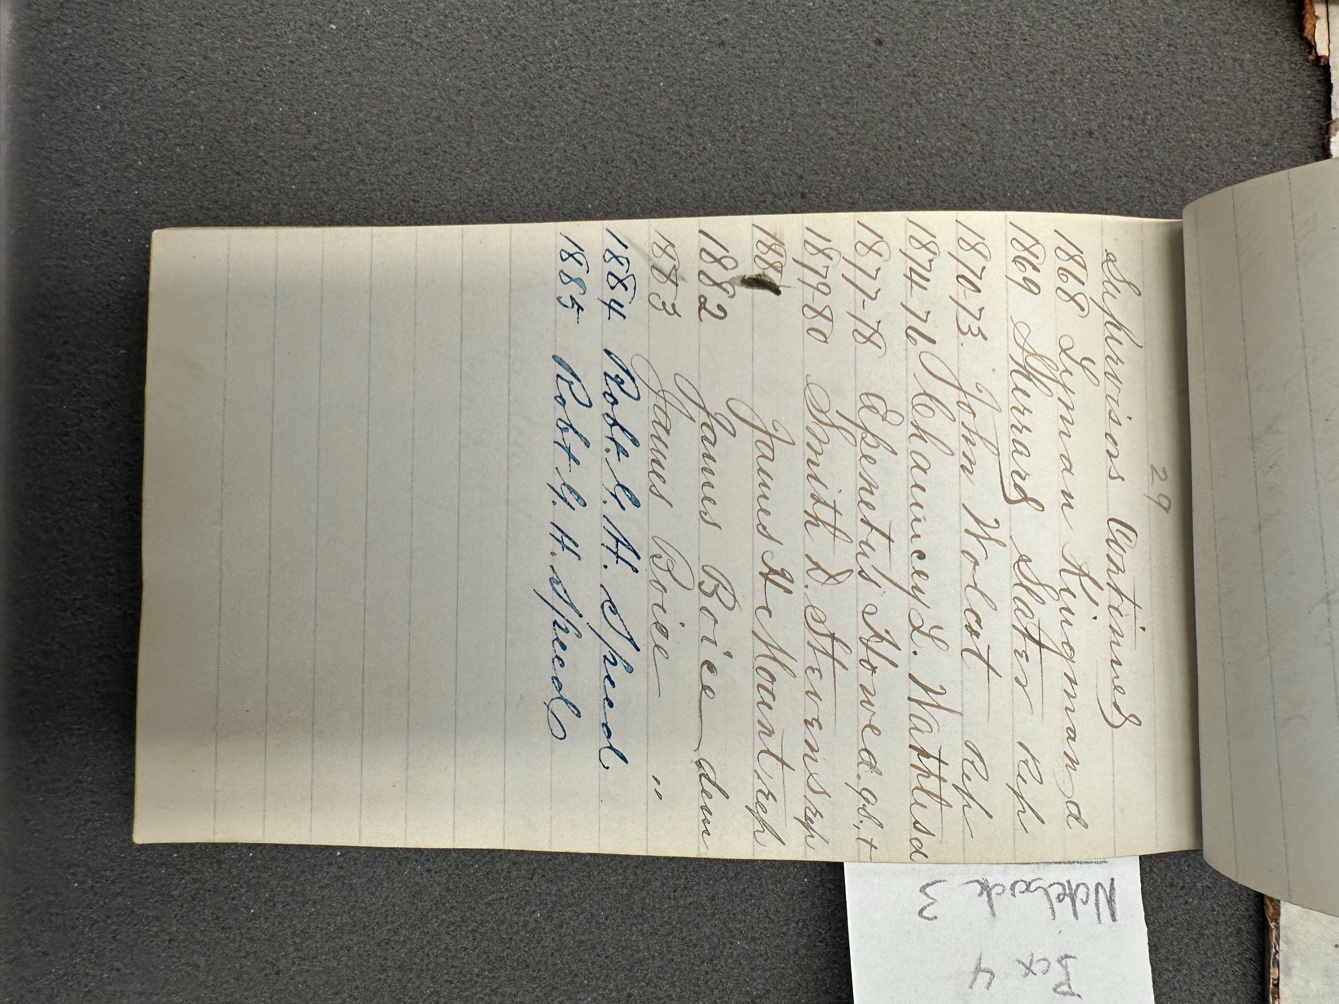 29
Supervisors Continued
1868 Lyman Kingman d
1869 Sherrard Slater Rep
1870-73. John Wolcot Rep
1874-76 Chauncey L. Wattles d
1877-78 Epenetus Howe d. g. b, t
1879-80 Smith D. Stevens rep
1881 James H c Mount rep
1882 James Boice dem
1883 James Boice "
1884 Robt. G. H. Speed.
1885 Robt G. H. Speed
Box 4
Notebook 3